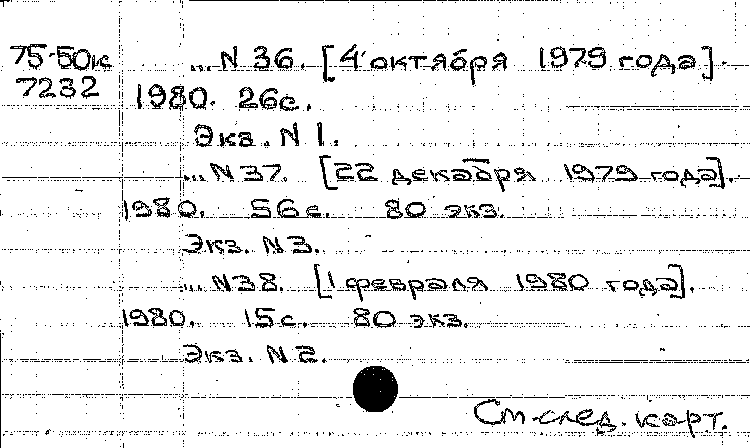 75-50к ...N 36. [4 октября 1979 года].
7232 1980. 26с.
Экз. N 1.
...N 37. [22 декабря 1979 года].
1980. 56с. 80 экз.
Экз. N 3.
...N 38. [1 февраля 1980 года].
1980. 15с. 80 экз.
Экз. N 2.
См. след. карт.